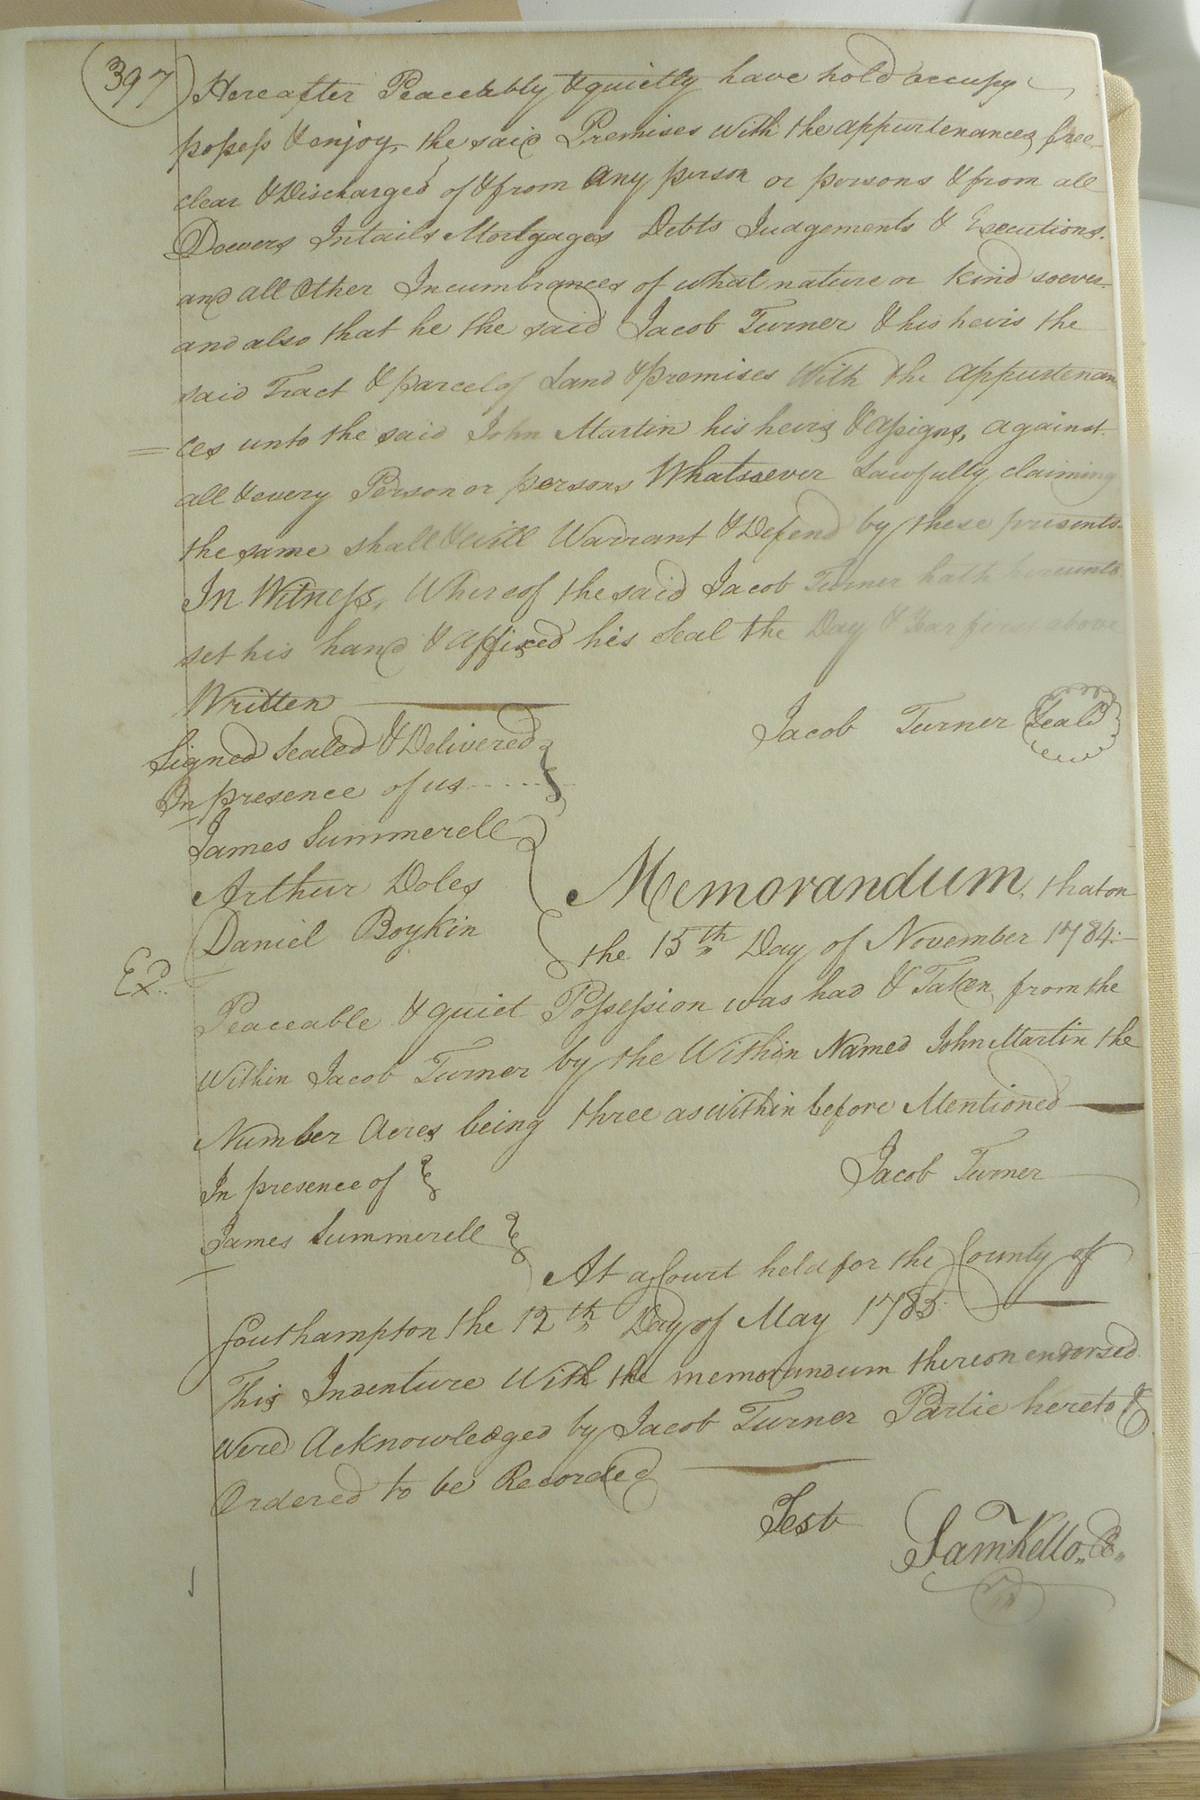 397
Hereafter Peaceably & quietly have hold occupy
possess & enjoy, the said Premises with the appurtenances, free
clear & Discharged of & from any person or persons & from all
Dowers, Intails Mortgages Debts Judgements & Executions.
and all Other Incumbrances of what nature or kind soever
and also that he the said Jacob Turner & his heirs the
said Tract & parcel of Land & premises With the appurtenan
= ces unto the said John Martin his heirs & assigns, against
all & every Person or persons Whatsoever Lawfully claiming
the same shall & will Warrant & Defend by these presents.
In Witness, Whereof the said Jacob Turner hath hereunto
set his hand & affixed his Seal the Day & Year first above
Written
Jacob Turner Seal
Signed Sealed & Delivered
In presence of us
James Summerell
Arthur Doles
Daniel Boykin
Ex.
Memorandum, that on
the 15th Day of November 1784
Peaceable & quiet Possession was had & Taken, from the
Within Jacob Turner by the Within Named John Martin the
Number Acres being three as within before Mentioned
In presence of
Jacob Turner
James Summerell
At a Court held for the County of
Southampton the 12th Day of May 1785
This Indenture With the memorandum thereon endorsed
were Acknowledged by Jacob Turner Partie hereto &
Ordered to be Recorded
Test
Sam Kello